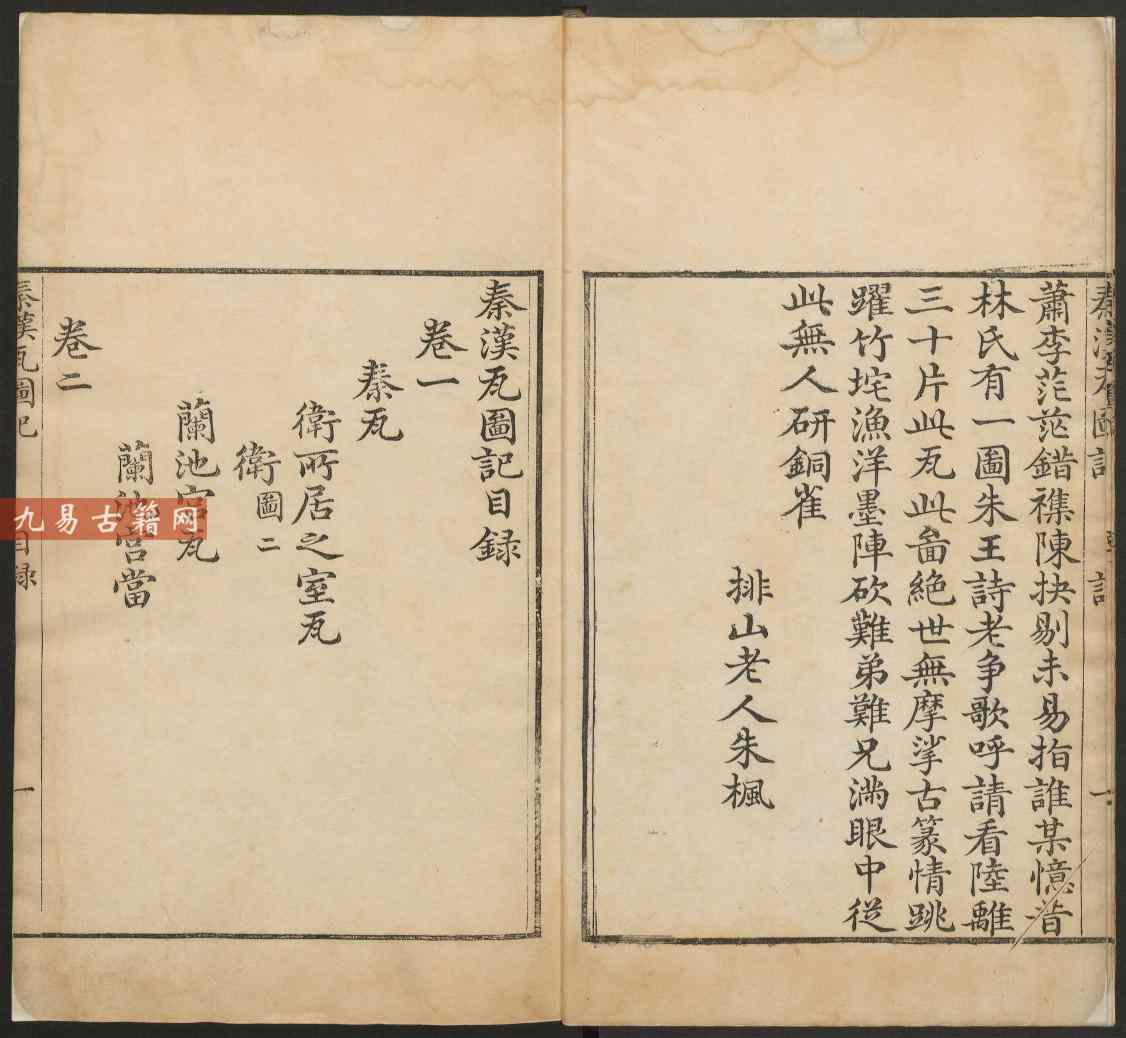 蕭李茫茫錯襍陳抉剔未易指誰某憶昔
林氏有一圖朱王詩老争歌呼請看陸離
三十片此瓦此畣絶世無摩挲古篆情跳
躍竹垞漁洋墨陣砍難弟難兄滿眼中從
此無人研銅雀
排山老人朱楓
秦漢瓦圖記目録
卷一
秦瓦
衛所居之室瓦
衛圖二
蘭池宫瓦
蘭池宫當
卷二
秦漢瓦圖記
目録
一
九易古籍网